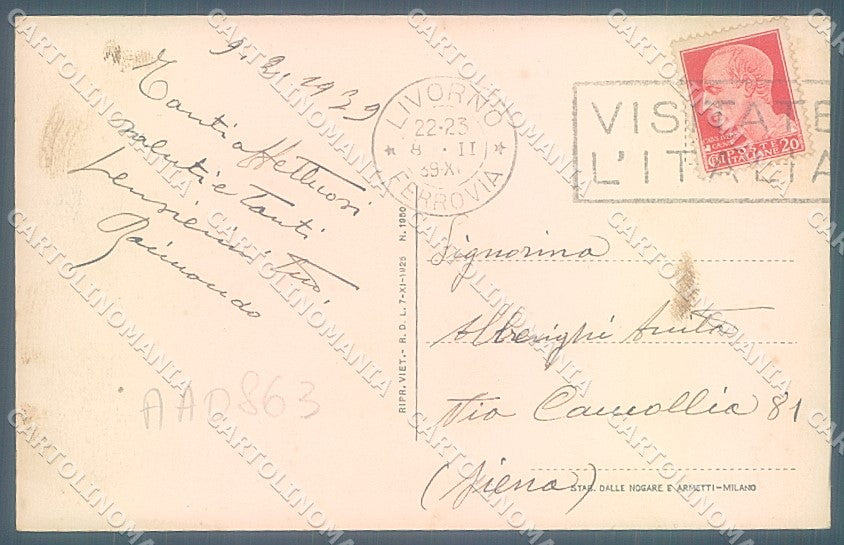 9. 2. 1939
Tanti affettuosi
saluti e tanti
pensierini tuo
Raimondo
AAD863
LIVORNO
22-23
8 · II
39-XV
FERROVIA
VISITATE
L'ITALIA
POSTE
ITALIANE
20
RIPR. VIET. - R. D. L. 7-XI-1925 N. 1950
Signorina
Alberighi Anita
Via Camollia 81
(Siena)
STAB. DALLE NOGARE E ARMETTI-MILANO
CARTOLINOMANIA